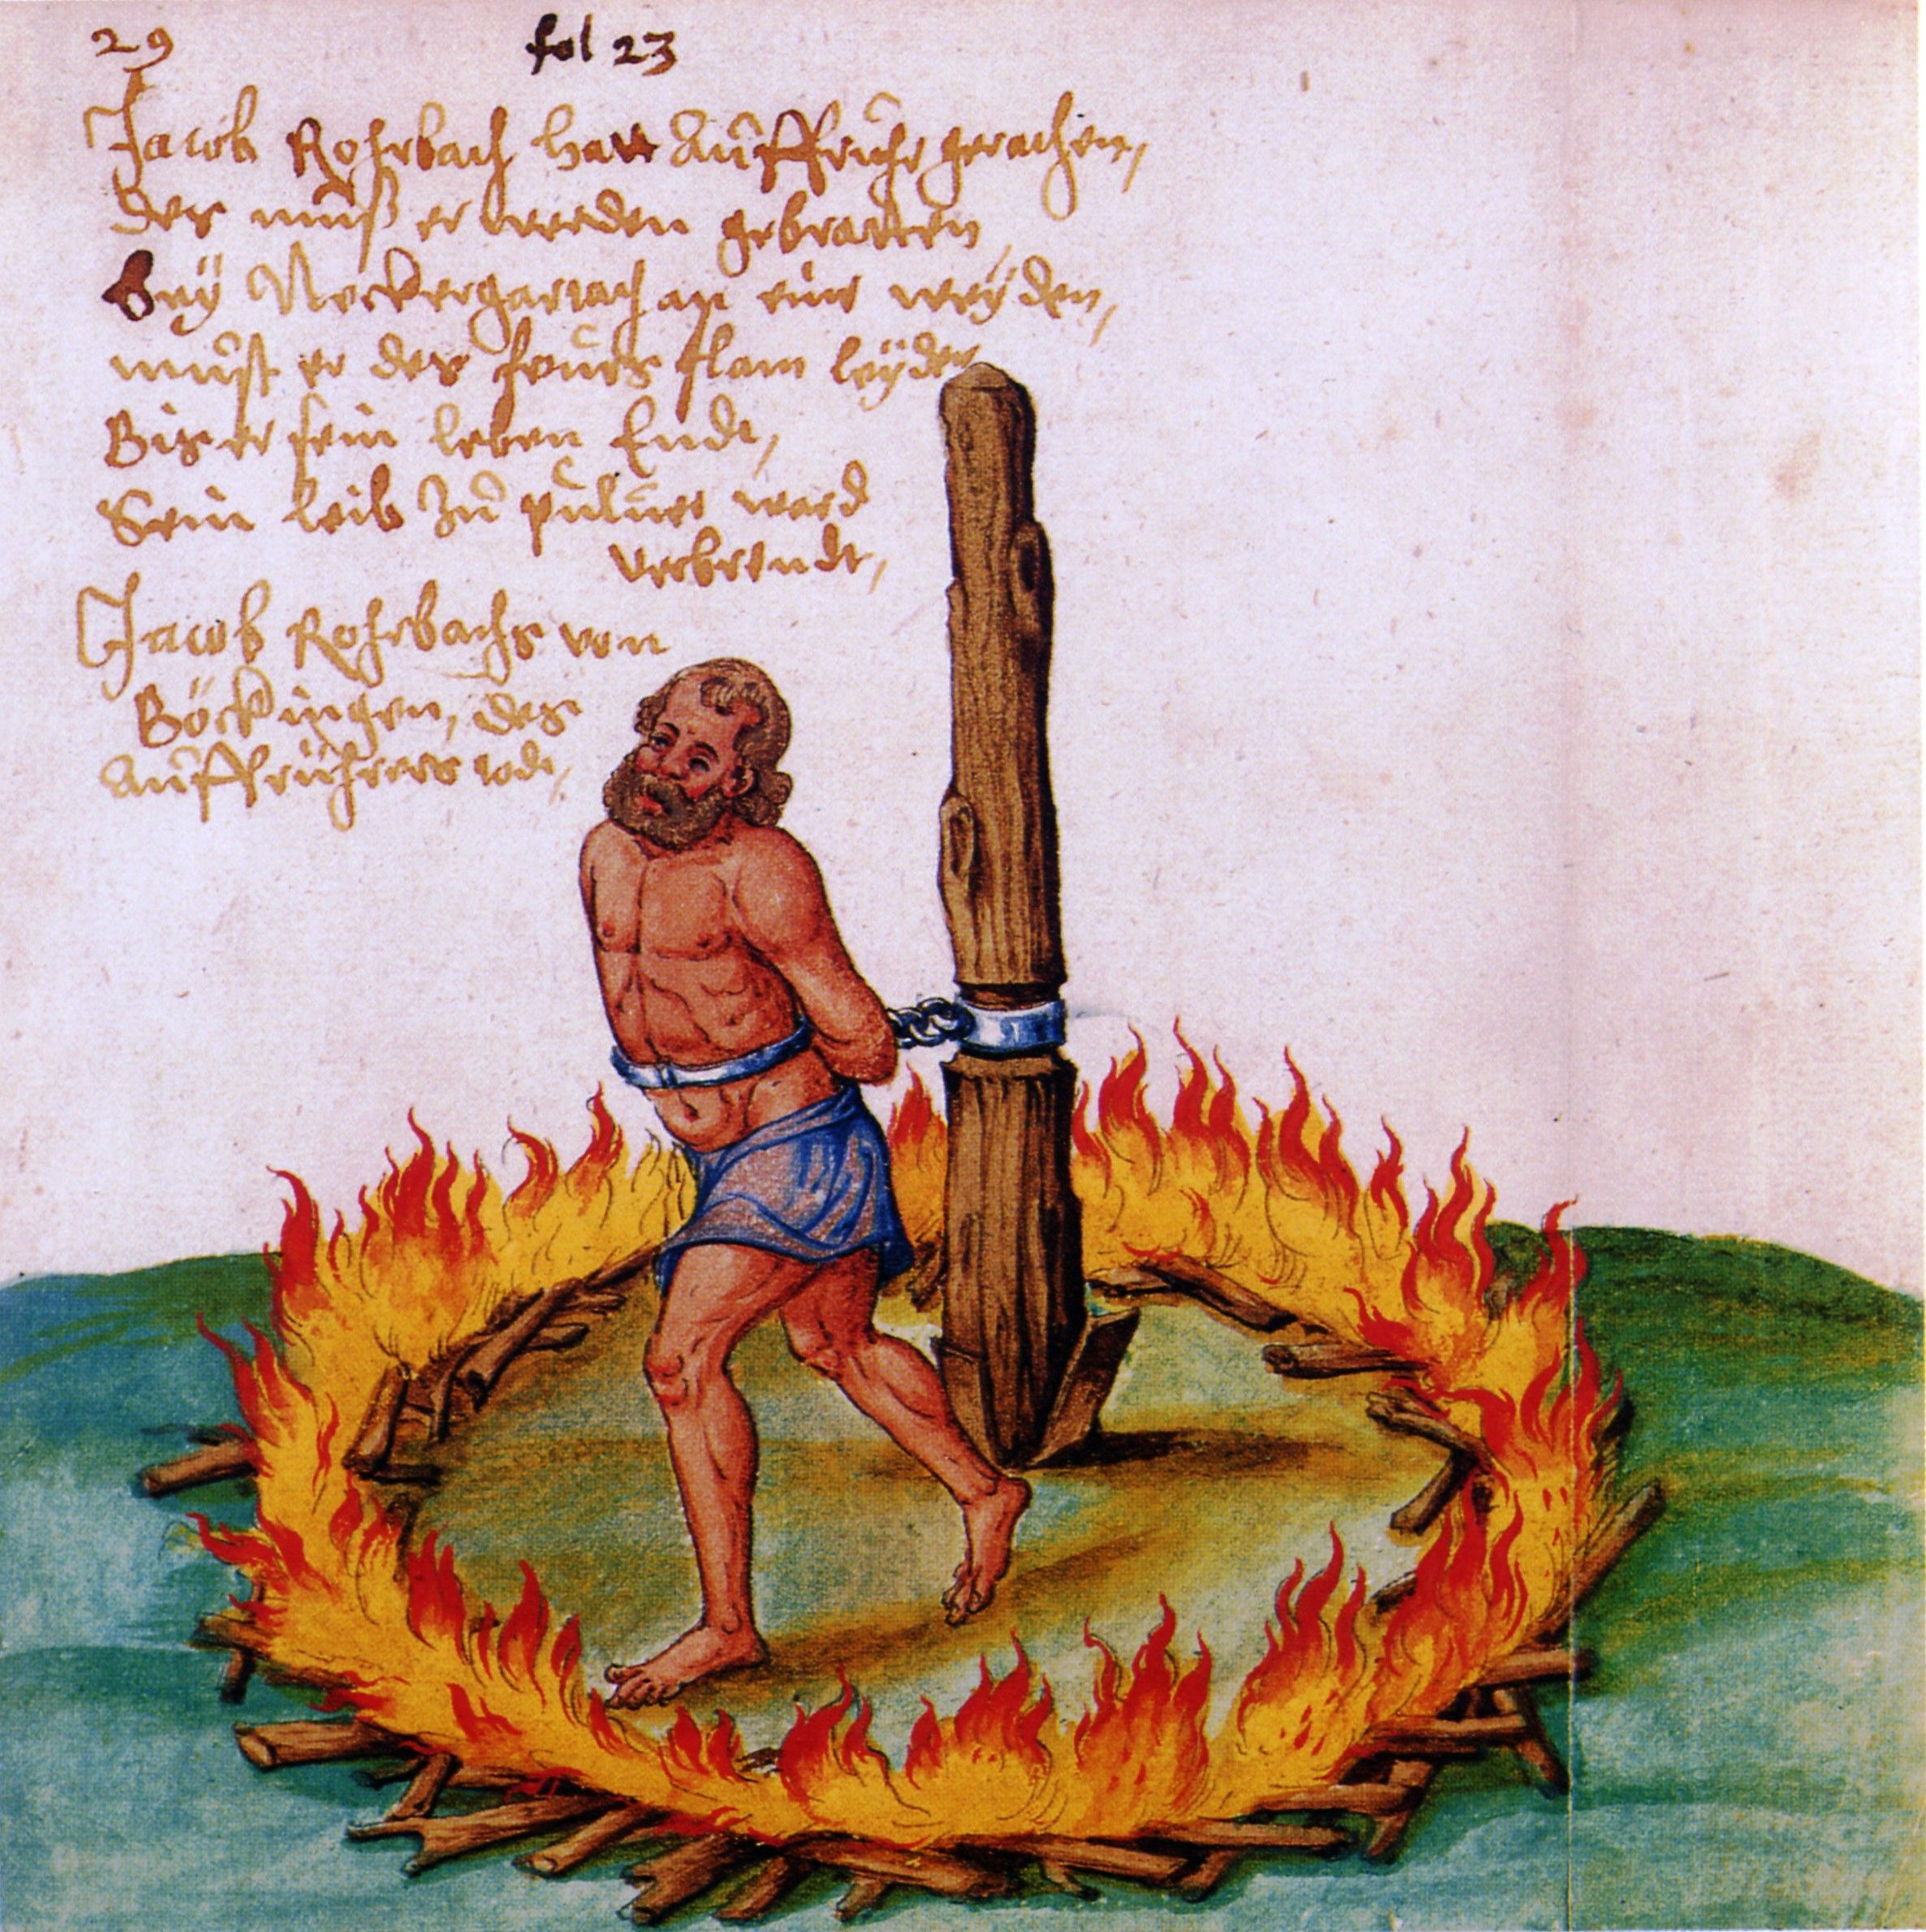 29 fol 23
Jacob Rohrbach hatt Auffruhr gerathen,
Des muß er werden gebratten
Bey Neckergartach an eine weyden,
must er des feurs flam leyden
Bis er sein leben Endt,
Sein leib zu puluer ward
verbrendt,
Jacob Rohrbachs von
Böckingen, des
Auffrührers todt,